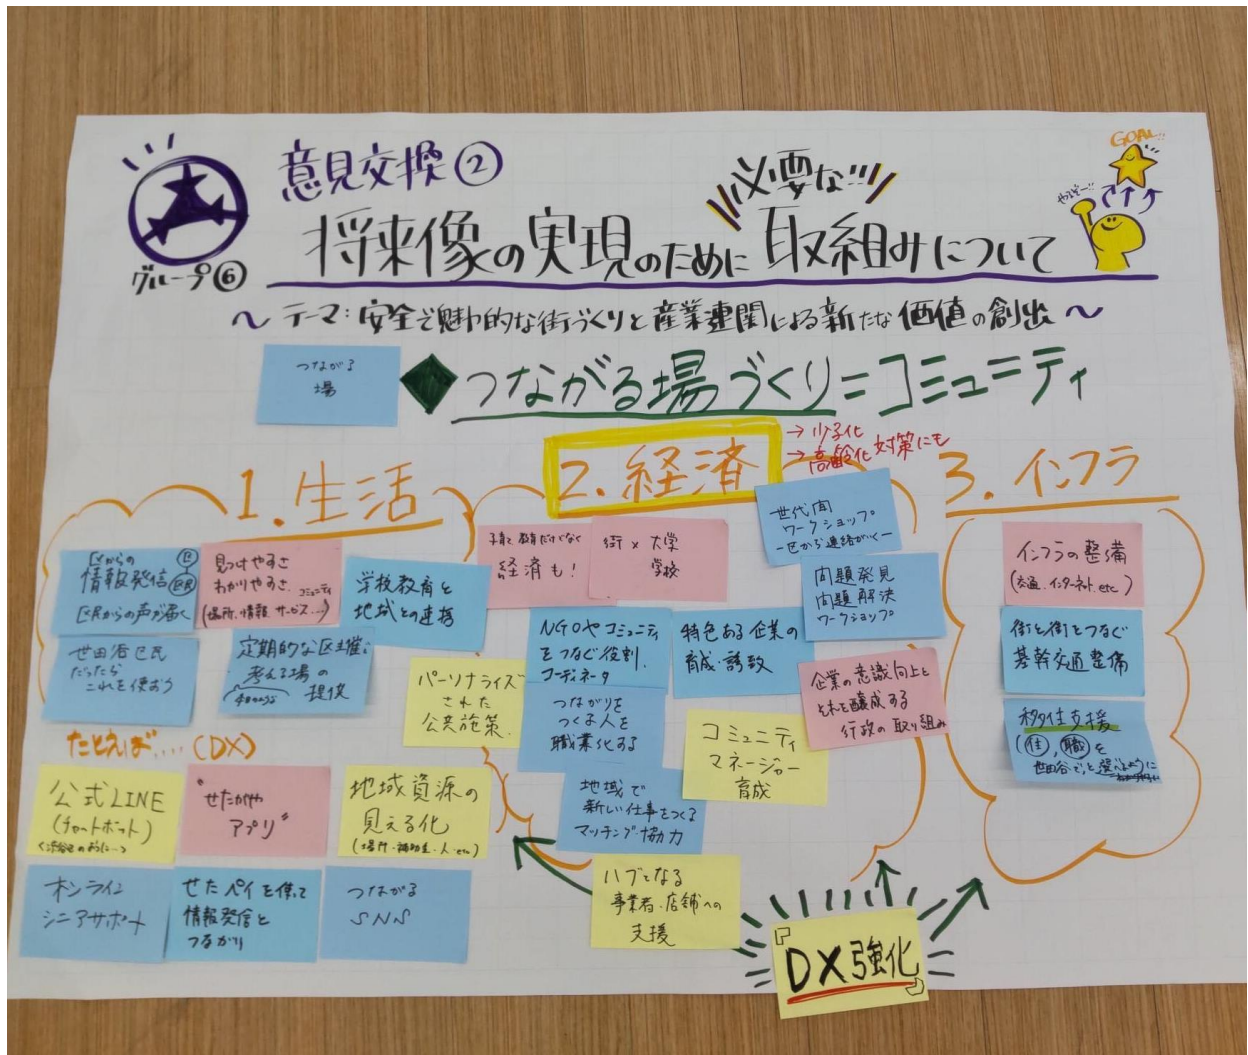 グループ⑥
意見交換②
必要な!!!
将来像の実現のために取組みについて
GOAL!!
やるぞー!!
〜テーマ:安全で魅力的な街づくりと産業連関による新たな価値の創出〜
つながる
場
つながる場づくり=コミュニティ
1.生活
区からの
情報発信
区民からの声が届く
見つけやすさ
わかりやすさ
コミュニティ
(場所、情報、サービス…)
学校教育と
地域との連携
世田谷区民
だったら
これを使おう
定期的な区主催
考える場の
提供
パーソナライズ
された
公共施策.
たとえば....(DX)
公式LINE
(チャットボット)
"せたがや
アプリ"
地域資源の
見える化
(場所・補助金・人・etc)
オンライン
シニアサポート
せたペイを使って
情報発信と
つながり
つながる
SNS
2.経済
→少子化
→高齢化 対策にも
子育て、教育だけでなく
経済も!
街×大学
学校
世代間
ワークショップ
ー区から連絡がいくー
問題発見
問題解決
ワークショップ
NGOやコミュニティ
をつなぐ役割.
コーディネータ
特色ある企業の
育成・誘致
企業の意識向上と
それを醸成する
行政の取り組み
つながりを
つくる人を
職業化する
コミュニティ
マネージャー
育成
地域で
新しい仕事をつくる
マッチング・協力
ハブとなる
事業者・店舗への
支援
3.インフラ
インフラの整備
(交通、インターネット、etc)
街と街をつなぐ
基幹交通整備
移住支援
(住,職)を
『DX強化』